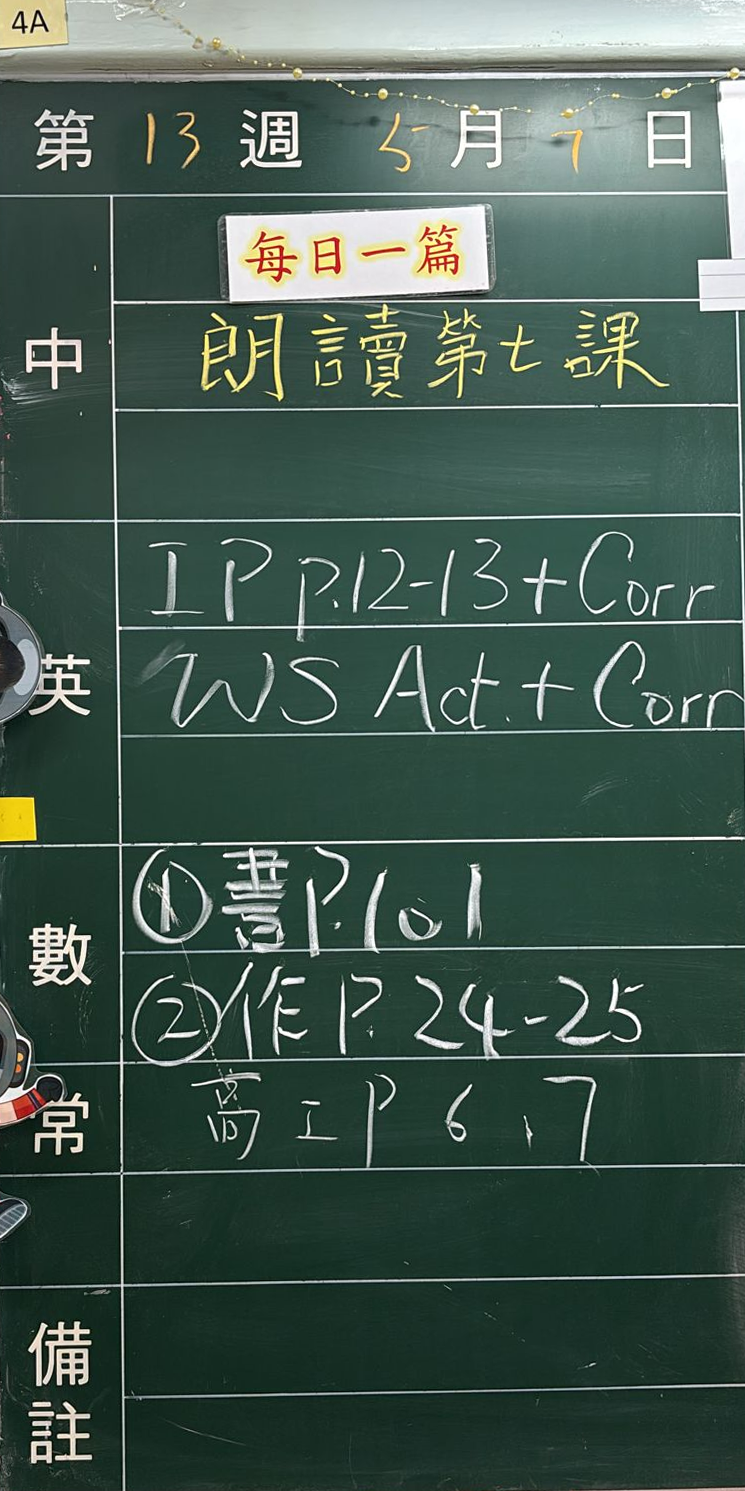 4A
第 13 週 5 月 7 日
每日一篇
中 朗讀第七課
IP p.12-13 + Corr
英 WS Act. + Corr
數 ①書P.101
②作P.24-25
常 高IP 6、7
備註